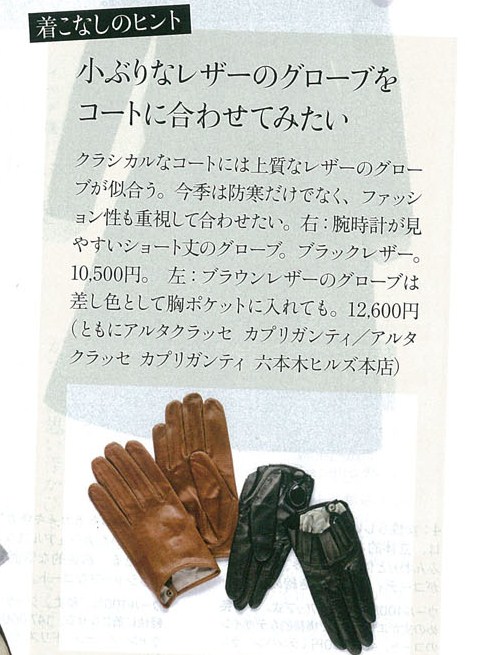 着こなしのヒント
小ぶりなレザーのグローブを
コートに合わせてみたい
クラシカルなコートには上質なレザーのグロー
ブが似合う。今季は防寒だけでなく、ファッシ
ョン性も重視して合わせたい。右：腕時計が見
やすいショート丈のグローブ。ブラックレザー。
10,500円。 左：ブラウンレザーのグローブは
差し色として胸ポケットに入れても。12,600円
（ともにアルタクラッセ カプリガンティ／アルタ
クラッセ カプリガンティ 六本木ヒルズ本店）